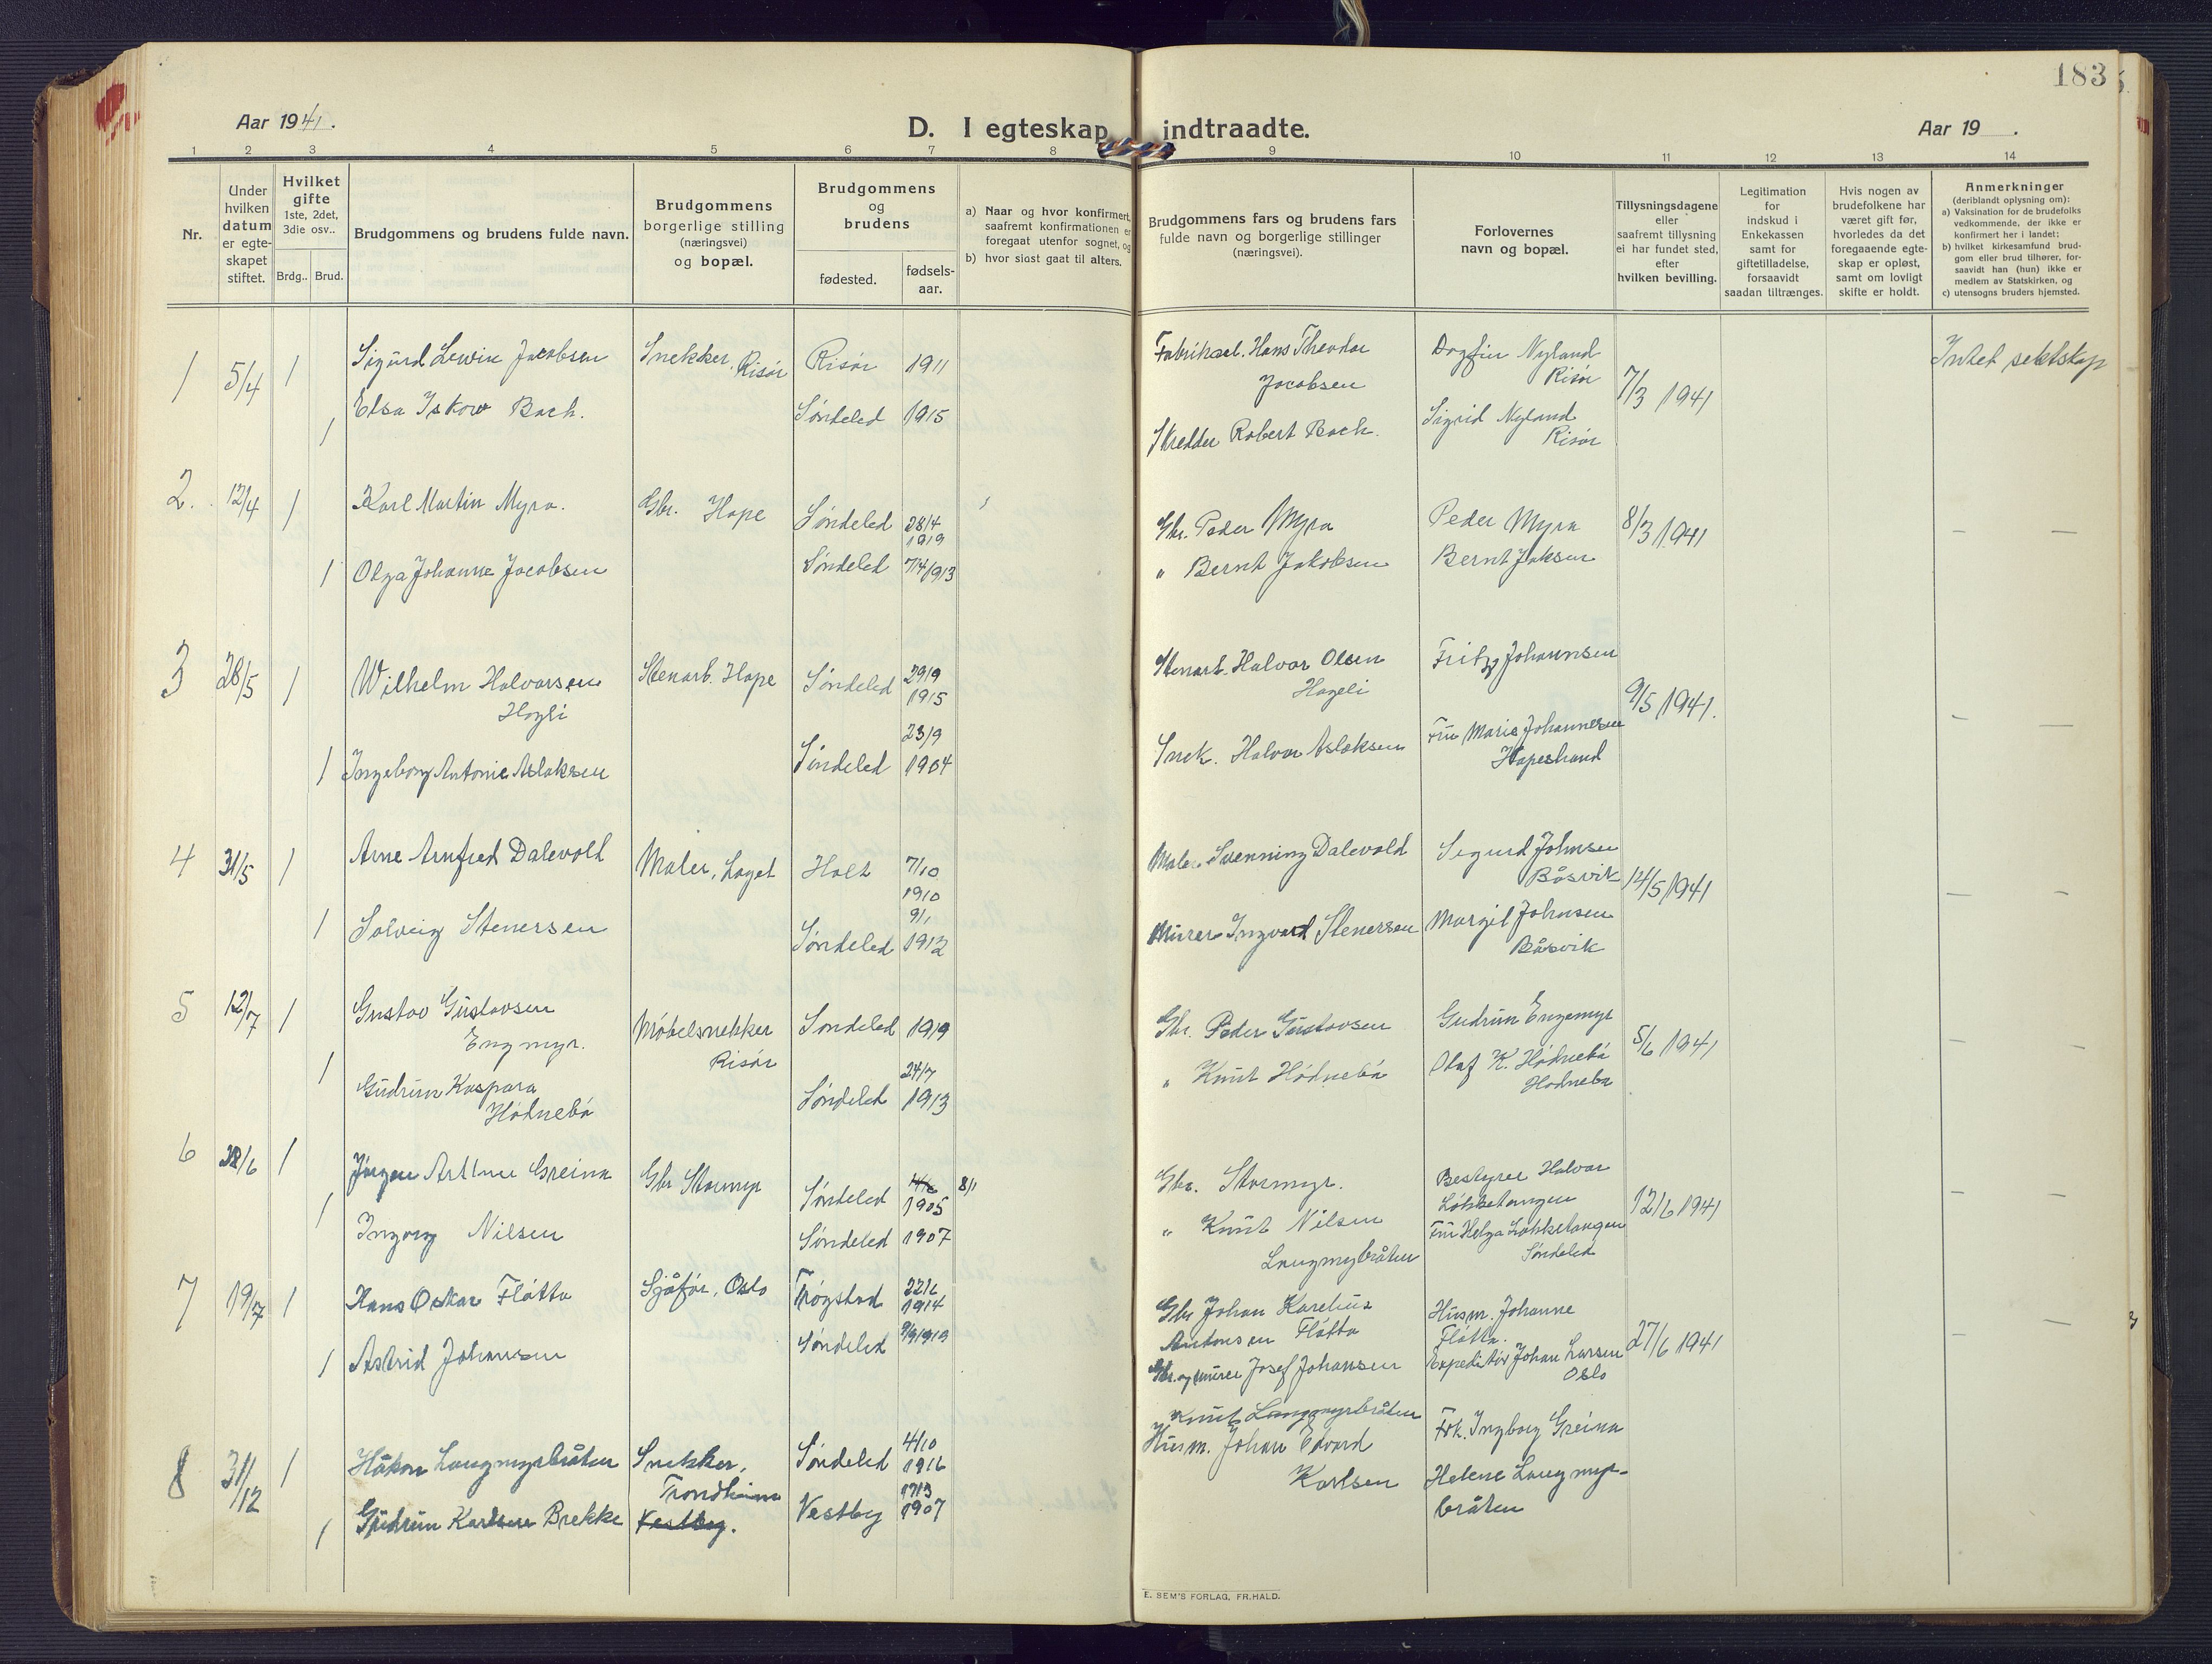 183
Aar 1941.
D. I egteskap indtraadte.
Aar 19 .
1 2 3 4 5 6 7 8 9 10 11 12 13 14
Nr.
Under
hvilken
datum
er egte-
skapet
stiftet.
Hvilket
gifte
1ste, 2det,
3die osv..
Brdg.. Brud.
Brudgommens og brudens fulde navn.
Brudgommens
borgerlige stilling
(næringsvei)
og bopæl.
Brudgommens
og
brudens
fødested.
fødsels-
aar.
a) Naar og hvor konfirmert,
saafremt konfirmationen er
foregaat utenfor sognet, og
b) hvor sidst gaat til alters.
Brudgommens fars og brudens fars
fulde navn og borgerlige stillinger
(næringsvei).
Forlovernes
navn og bopæl.
Tillysningsdagene
eller
saafremt tillysning
ei har fundet sted,
efter
hvilken bevilling.
Legitimation
for
indskud i
Enkekassen
samt for
giftetilladelse,
forsaavidt
saadan tiltrænges.
Hvis nogen av
brudefolkene har
været gift før,
hvorledes da det
foregaaende egte-
skap er opløst,
samt om lovligt
skifte er holdt.
Anmerkninger
(deriblandt oplysning om):
a) Vaksination for de brudefolks
vedkommende, der ikke er
konfirmert her i landet;
b) hvilket kirkesamfund brud-
gom eller brud tilhører, for-
saavidt han (hun) ikke er
medlem av Statskirken, og
c) utensogns bruders hjemsted.
1 5/4 1 Sigurd Lewin Jacobsen Snekker, Risør Risør 1911
1 Elsa Iskow Bach. Søndeled 1915
Fabrikael. Hans Theodor
Jacobsen
Skredder Robert Bach.
Dagfin Nyland
Risør
Sigrid Nyland
Risør
7/3 1941
Intet slektskap
2. 12/4 1 Karl Martin Myra. Gbr. Hope Søndeled 28/4
1919
1 Olga Johanne Jacobsen Søndeled 7/4 1913
Gbr. Peder Myra
" Bernt Jakobsen
Peder Myra
Bernt Jaksen
8/3 1941
— —
3 28/5 1 Wilhelm Halvorsen
Hagli
Stenarb. Hope Søndeled 29/9
1915
1 Ingeborg Antonie Aslaksen Søndeled 23/9
1904
Stenarb. Halvor Olsen
Hageli
Snek. Halvor Aslaksen
Fritz Johannsen
Fru Marie Johannesen
Hopestrand
9/5 1941.
— —
4 31/5 1 Arne Arnfred Dalevold Maler, Laget Holt 7/10
1910
1 Solveig Stenersen Søndeled 9/1
1912
Maler Svenning Dalevold
Murer Ingvard Stenersen
Sigurd Johnsen
Båsvik
Margit Johnsen
Båsvik
14/5 1941
— —
5 12/7 1 Gustav Gustavsen
Engmyr.
Møbelsnekker
Risør
Søndeled 1919
1 Gudrun Kaspara
Hødnebø
Søndeled 24/7
1913
Gbr. Peder Gustavsen
" Knut Hødnebø
Gudrun Engemyr
Olaf K. Hødnebø
Hødnebø
5/6 1941
— —
6 28/6 1 Jørgen Arthur Greina Gbr Stormyr Søndeled
1905 8/1
1 Ingborg Nilsen Søndeled 1907
Gbr. Stormyr.
" Knut Nilsen
Langmyrbråten
Bestyrer Halvor
Løkketangen
Fru Helga Løkketangen
Søndeled
12/6 1941
— —
7 19/7 1 Hans Oskar Fløtta Sjåfør, Oslo Trøgstad 22/6
1914
1 Astrid Johansen Søndeled 9/9 1913
Gbr Johan Karelius
Antonsen Fløtta
Gbr. og murer Josef Johansen
Husm. Johanne
Fløtta.
Expeditør Johan Larsen
Oslo
27/6 1941
— —
8 31/12 1 Håkon Langmyrbråten Snekker,
Trondheim
Søndeled 4/10
1916
1 Gudrun Karlsen Brekke Vestby. Vestby 17/3
1907
Knut Langmyrbråten
Husm. Johan Edvard
Karlsen
Frk. Ingborg Greina
Helene Langmyr-
bråten
E. SEM'S FORLAG, FR.HALD.